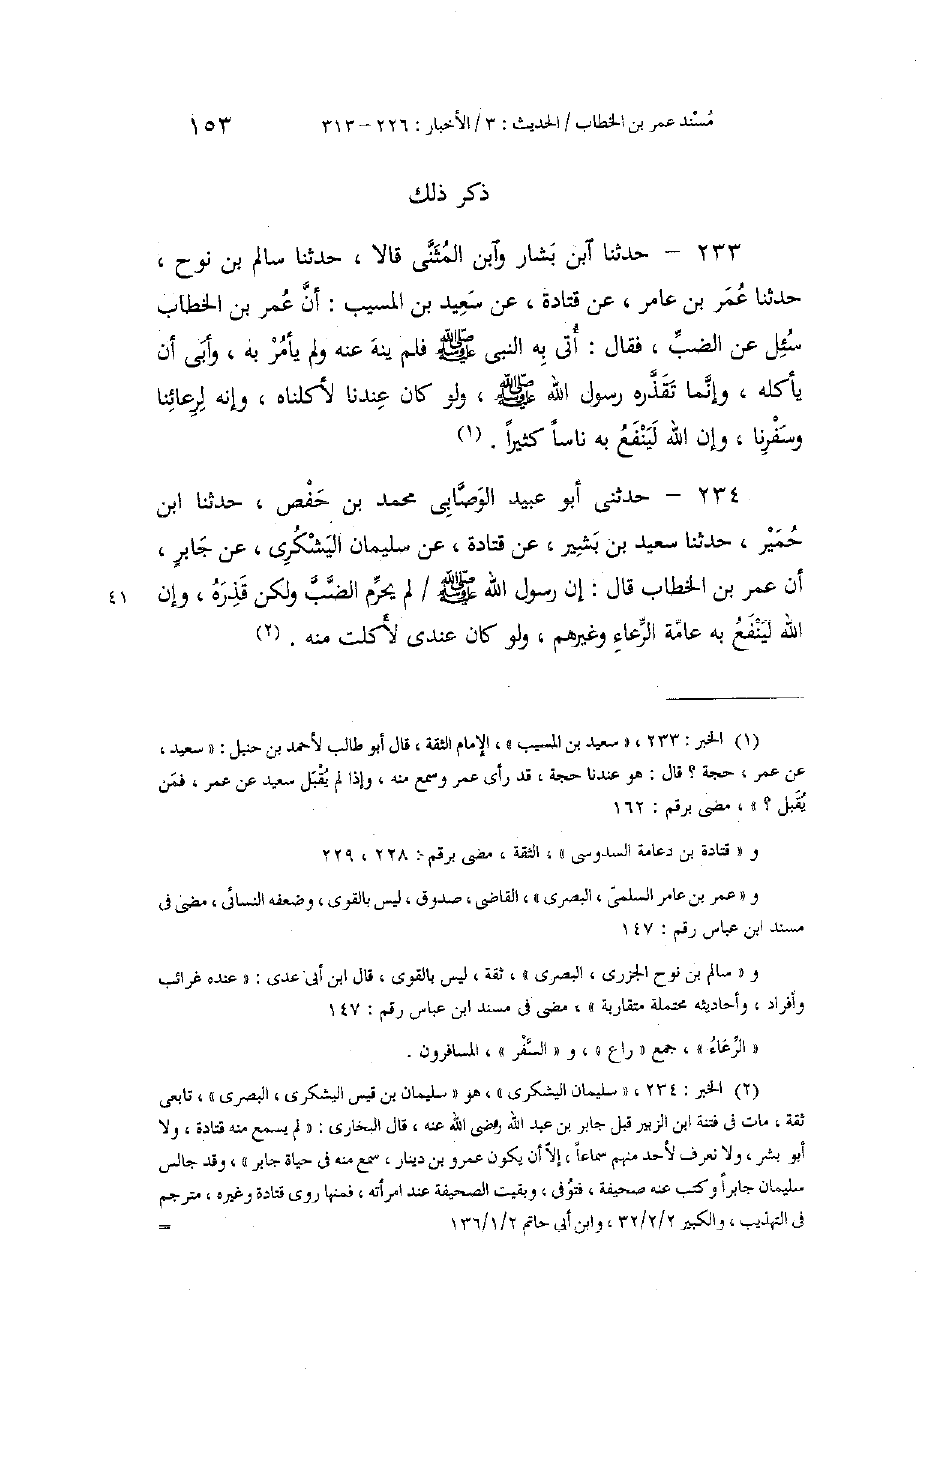 مُسْند عمر بن الخطاب / الحديث : ٣ / الأخبار : ٢٢٦ - ٣١٣ ١٥٣
ذكر ذلك
٢٣٣ - حدثنا آبن بَشار وآبن المُثَنَّى قالا ، حدثنا سالم بن نوح ،
حدثنا عُمَر بن عامر ، عن قتادة ، عن سَعِيد بن المسيب : أنَّ عُمر بن الخطاب
سُئِل عن الضبِّ ، فقال : أُتى بِه النبى ﷺ فلم ينهَ عنه ولم يأمُرْ به ، وأبَى أن
يأكله ، وإنَّما تَقَذَّره رسول الله ﷺ ، ولو كان عِندنا لأكلناه ، وإنه لِرِعائِنا
وسَفْرِنا ، وإن الله لَيَنْفَعُ به ناساً كثيراً . (١)
٢٣٤ - حدثنى أبو عبيد الوَصَّابِى محمد بن حَفْص ، حدثنا ابن
حُمَيْر ، حدثنا سعيد بن بَشِير ، عن قتادة ، عن سليمان اليَشْكُرِى ، عن جَابرٍ ،
أن عمر بن الخطاب قال : إن رسول الله ﷺ / لم يحرِّم الضبَّ ولكن قَذِرَهُ ، وإن ٤١
الله لَيَنْفَعُ به عامّة الرِّعاءِ وغيرهم ، ولو كان عندى لأكلت منه . (٢)
(١) الخبر : ٢٣٣ ، « سعيد بن المسيب » ، الإمام الثقة ، قال أبو طالب لأحمد بن حنبل : « سعيد ،
عن عمر ، حجة ؟ قال : هو عندنا حجة ، قد رأى عمر وسمع منه ، وإذا لم يُقْبَل سعيد عن عمر ، فمَن
يُقَبل ؟ » ، مضى برقم : ١٦٢
و « قتادة بن دعامة السدوسى » ، الثقة ، مضى برقم : ٢٢٨ ، ٢٢٩
و « عمر بن عامر السلمىّ ، البصرى » ، القاضى ، صدوق ، ليس بالقوى ، وضعفه النسائى ، مضى فى
مسند ابن عباس رقم : ١٤٧
و « سالم بن نوح الجزرى ، البصرى » ، ثقة ، ليس بالقوى ، قال ابن أبى عدى : « عنده غرائب
وأفراد ، وأحاديثه محتملة متقاربة » ، مضى فى مسند ابن عباس رقم : ١٤٧
« الرِّعَاءُ » ، جمع « راع » ، و « السَّفْر » ، المسافرون .
(٢) الخبر : ٢٣٤ ، « سليمان اليشكرى » ، هو « سليمان بن قيس اليشكرى ، البصرى » ، تابعى
ثقة ، مات فى فتنة ابن الزبير قبل جابر بن عبد الله رضى الله عنه ، قال البخارى : « لم يسمع منه قتادة ، ولا
أبو بشر ، ولا نعرف لأحد منهم سماعاً ، إلاّ أن يكون عمرو بن دينار ، سمع منه فى حياة جابر » ، وقد جالس
سليمان جابراً وكتب عنه صحيفة ، فتوُفى ، وبقيت الصحيفة عند امرأته ، فمنها روى قتادة وغيره ، مترجم
فى التهذيب ، والكبير ٣٢/٢/٢ ، وابن أبى حاتم ١٣٦/١/٢ =